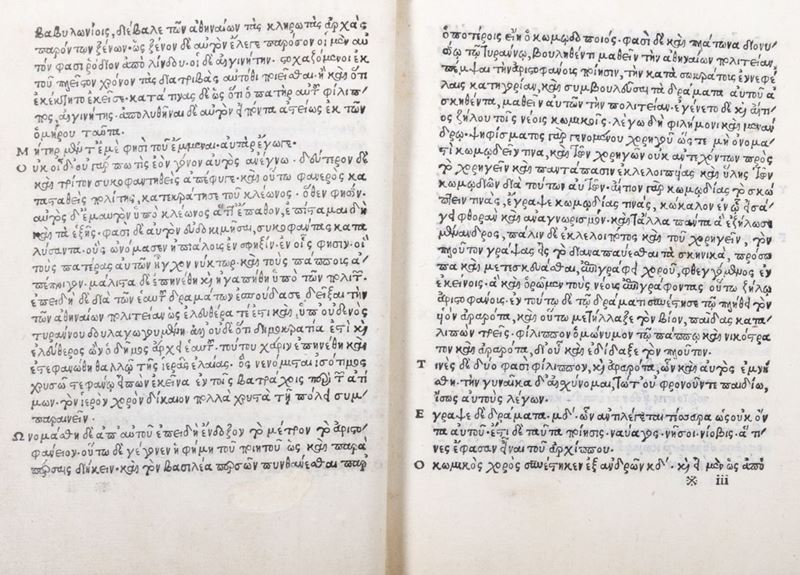 Βαβυλωνίοις, διέβαλε τῶν ἀθηναίων τὰς κληρωτὰς ἀρχὰς
παρόντων ξένων. ὡς ξένον δὲ αὐτὸν ἔλεγε παρόσον οἱ μὲν αὐ
τόν φασι ῥόδιον ἀπὸ λίνδου. οἱ δὲ αἰγινήτην. στοχαζόμενοι ἐκ
τοῦ πλεῖστον χρόνον τὰς διατριβὰς αὐτόθι ποιεῖσθαι. ἢ καὶ ὅτι
ἐκέκτητο ἐκεῖσε. κατά τινας δὲ ὡς ὅτι ὁ πατὴρ αὐτοῦ φίλιπ
πος, αἰγινήτης. ἀπολυθῆναι δὲ αὐτὸν εἰπόντα ἀστείως ἐκ τῶν
ὁμήρου ταῦτα.
Μήτηρ μέν τ' ἐμέ φησι τοῦ ἔμμεναι. αὐτὰρ ἔγωγε.
Οὐκ οἶδ' οὐ γάρ πω τις ἑὸν γόνον αὐτὸς ἀνέγνω. δεύτερον δὲ
καὶ τρίτον συκοφαντηθεὶς ἀπέφυγε. καὶ οὕτω φανερὸς κα
τασταθεὶς πολίτης, κατεκράτησε τοῦ κλέωνος. ὅθεν φησίν.
αὐτὸς δ' ἐμαυτὸν ὑπὸ κλέωνος ἅττ' ἔπαθον, ἐπίσταμαι δὴ
καὶ τὰ ἑξῆς. φασὶ δὲ αὐτὸν εὐδοκιμῆσαι, συκοφάντας κατα
λύσαντα. οὓς ὠνόμασεν ἠπιάλοις ἐν σφηξίν. ἐν οἷς φησιν. οἳ
τοὺς πατέρας αὐτῶν ἦγχον νύκτωρ. καὶ τοὺς πάππους ἀ
πέπνιγον. μάλιστα δὲ ἐπῃνέθη καὶ ἠγαπήθη ὑπὸ τῶν πολιτῶν.
ἐπειδὴ δὲ διὰ τῶν ἑαυτοῦ δραμάτων ἐσπούδασε δεῖξαι τὴν
τῶν ἀθηναίων πολιτείαν ὡς ἐλευθέρα τέ ἐστι καὶ ὑπ' οὐδενὸς
τυράννου δουλαγωγουμένη ἀλλ' ὅτι δημοκρατία ἐστὶ καὶ
ἐλεύθερος ὢν ὁ δῆμος ἄρχει ἑαυτοῦ. τούτου χάριν ἐπῃνέθη καὶ
ἐστεφανώθη θαλλῷ τῆς ἱερᾶς ἐλαίας. ὃς νενόμισται ἰσότιμος
χρυσῷ στεφάνῳ εἰπὼν ἐκεῖνα ἐν τοῖς βατράχοις περὶ τῶν ἀτί
μων. τὸν ἱερὸν χορὸν δίκαιον πολλὰ χρηστὰ τῇ πόλει συμ
παραινεῖν.
Ὠνομάσθη δὲ ἀπ' αὐτοῦ ἐπειδὴ ἔνδοξον τὸ μέτρον τὸ ἀριστο
φάνειον. οὕτω δὲ γέγονεν ἡ φήμη τοῦ ποιητοῦ ὡς καὶ παρὰ
πέρσαις διήκειν. καὶ τὸν βασιλέα περσῶν πυνθάνεσθαι παρ'
ὁποτέροις εἴη ὁ κωμῳδοποιός. φασὶ δὲ καὶ πλάτωνα διονυ
σίῳ τῷ τυράννῳ, βουληθέντι μαθεῖν τὴν ἀθηναίων πολιτείαν,
πέμψαι τὴν ἀριστοφάνους ποίησιν, τὴν κατὰ σωκράτους ἐν νεφέ
λαις κατηγορίαν, καὶ συμβουλεῦσαι τὰ δράματα αὐτοῦ ἀ
σκηθέντα, μαθεῖν αὐτῶν τὴν πολιτείαν. ἐγένετο δὲ καὶ αἴτι
ος ζήλου τοῖς νέοις κωμικοῖς. λέγω δὴ φιλήμονι καὶ μενάν
δρῳ. ψηφίσματος γὰρ γενομένου χορηγοῦ ὥστε μὴ ὀνομα
στὶ κωμῳδεῖν τινα, καὶ τῶν χορηγῶν οὐκ ἀντεχόντων πρὸς
τὸ χορηγεῖν καὶ παντάπασιν ἐκλελοιπυίας καὶ ὕλης τῶν
κωμῳδιῶν διὰ τούτων αὐτῶν. αἴτιον γὰρ κωμῳδίας τὸ σκώ
πτειν τινάς, ἔγραψε κωμῳδίας τινάς, κώκαλον ἐν ᾧ εἰσά
γει φθορὰν καὶ ἀναγνωρισμὸν. καὶ τἄλλα πάντα ἃ ἐζήλωσε
μένανδρος, πάλιν δὲ ἐκλελοιπότος καὶ τοῦ χορηγεῖν, τὸν
πλοῦτον γράψας εἰς τὸ διαναπαύεσθαι τὰ σκηνικά, πρόσω
πα καὶ μετεσκευάσθαι, ἐπιγράφει χοροῦ, φθεγγόμενος ἐν
ἐκείνοις. ἃ καὶ ὁρῶμεν τοὺς νέους ἐπιγράφοντας οὕτω ζήλῳ
ἀριστοφάνους. ἐν τούτῳ δὲ τῷ δράματι συνέστησε τῷ πλήθει τὸν
υἱὸν ἀραρότα, καὶ οὕτω μετήλλαξε τὸν βίον, παῖδας κατα
λιπὼν τρεῖς. φίλιππον ὁμώνυμον τῷ πάππῳ καὶ νικόστρα
τον καὶ ἀραρότα, δι' οὗ καὶ ἐδίδαξε τὸν πλοῦτον.
Τινὲς δὲ δύο φασὶ φίλιππον, καὶ ἀραρότα, ὧν καὶ αὐτὸς ἐμνή
σθη. τὴν γυναῖκα δ' αἰσχύνομαι, τώ τ' οὐ φρονοῦντε παιδίω,
ἴσως αὐτοὺς λέγων.
Ἔγραψε δὲ δράματα. μδ'. ὧν ἀντιλέγεται τέσσαρα ὡς οὐκ ὄν
τα αὐτοῦ. ἔστι δὲ ταῦτα ποίησις. ναύαγος. νῆσοι. νίοβις. ἅ τι
νες ἔφασαν εἶναι τοῦ ἀρχίππου.
Ὁ κωμικὸς χορὸς συνέστηκεν ἐξ ἀνδρῶν κδ'. καὶ εἰ μὲν ὡς ἀπὸ
iii